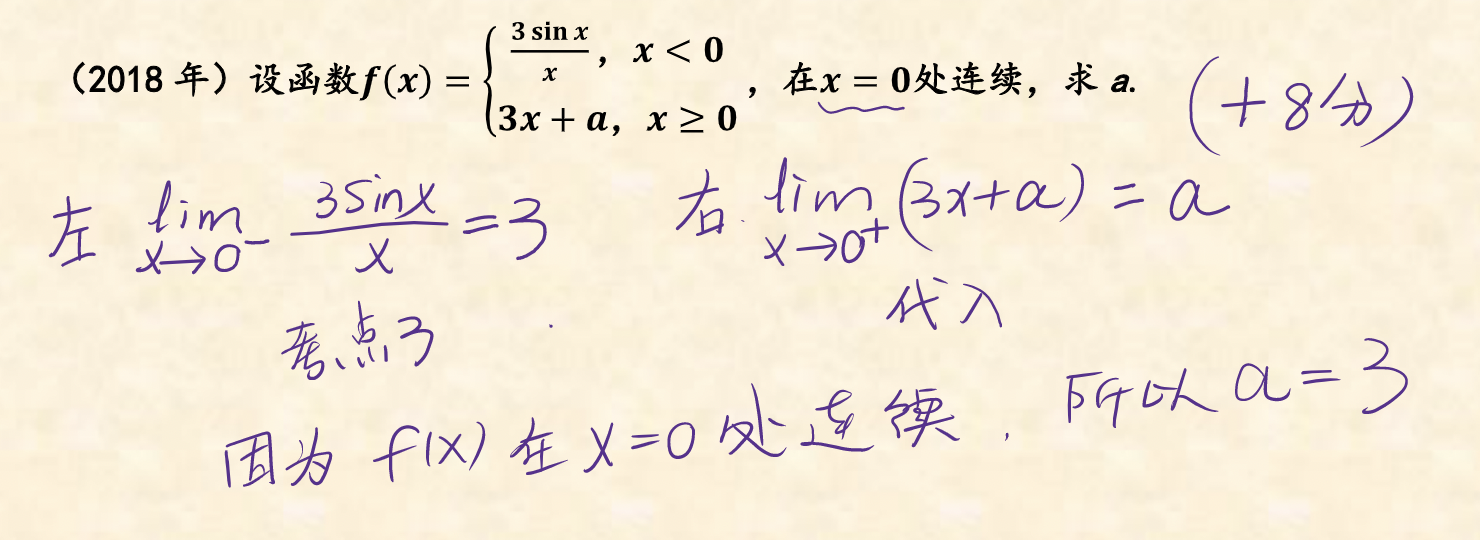 （2018 年）设函数f(x) = { 3 sin x / x ， x < 0 ; 3x + a， x ≥ 0 ，在x = 0处连续，求 a.
(+8分)
左 lim x→0⁻ 3sinx / x = 3 右 lim x→0⁺ (3x+a) = a
考点3 代入
因为 f(x) 在 x=0 处连续. 所以 a=3